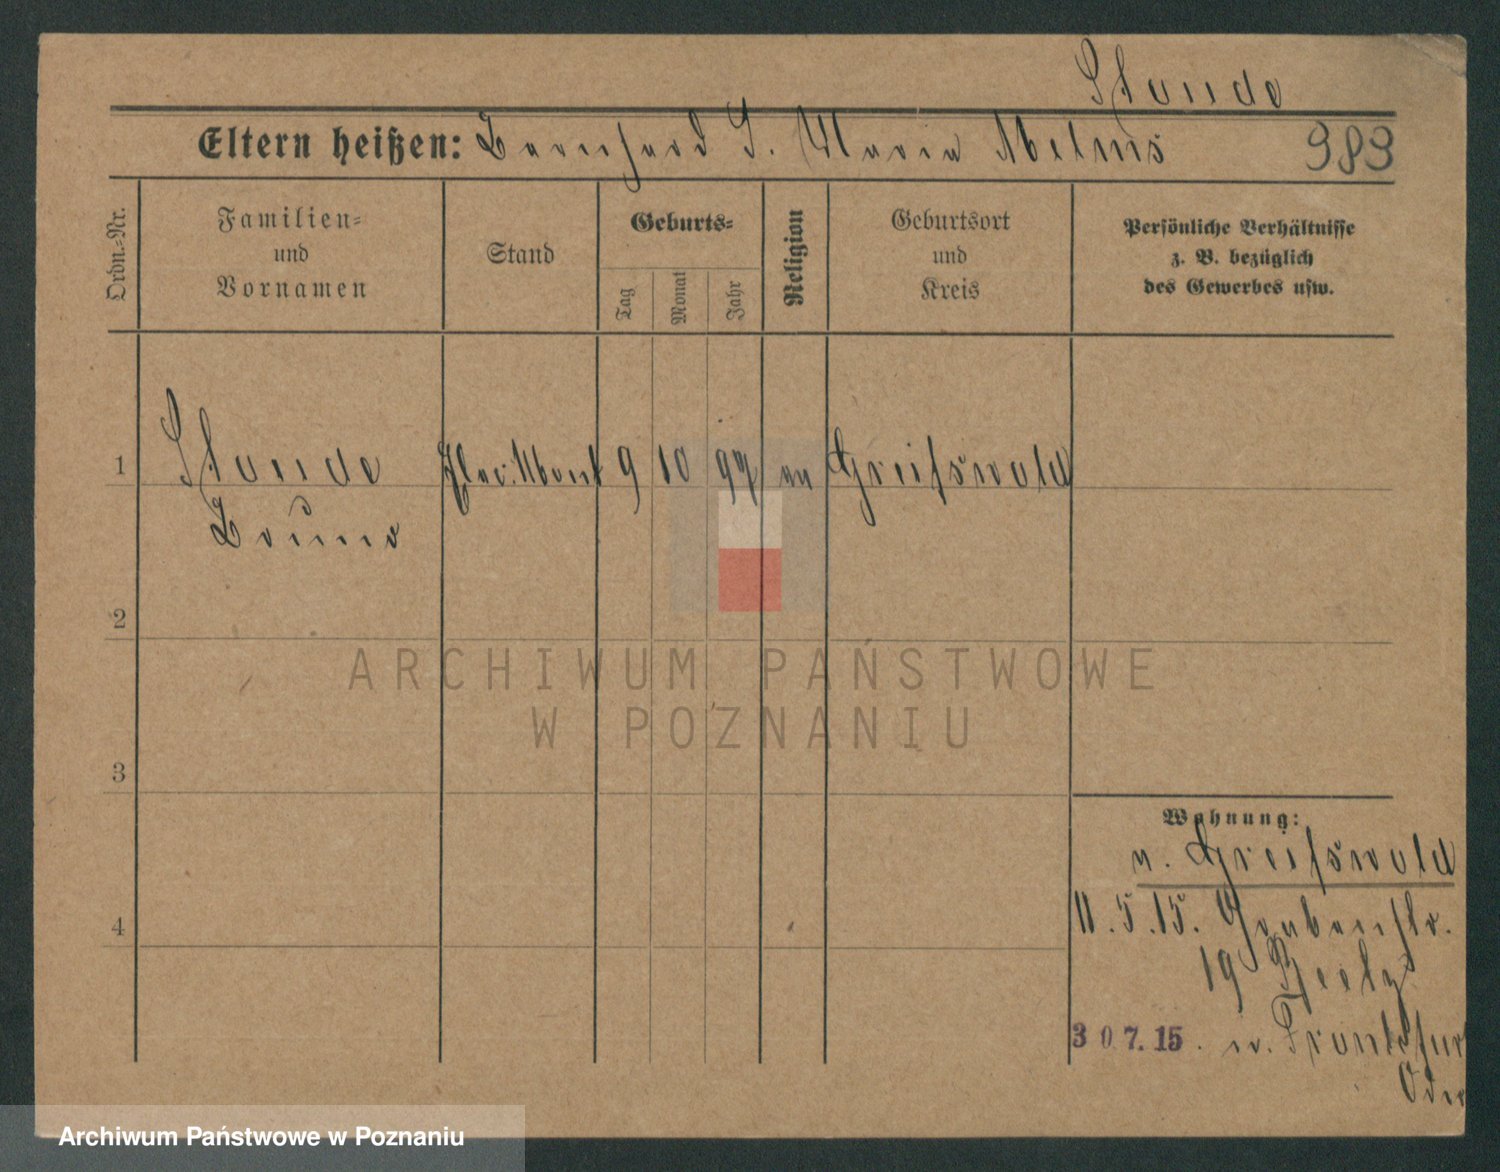 Staude
Eltern heißen: Bernhard S. Maria Melms 983
Ordn.-Nr.
Familien-
und
Vornamen
Stand
Geburts-
Tag
Monat
Jahr
Religion
Geburtsort
und
Kreis
Persönliche Verhältnisse
z. B. bezüglich
des Gewerbes usw.
1 Staude Elec. Mont 9 10 97 ev Greifswald
Bruno
2
3
4
Wohnung:
v. Greifswald
11.5.15. Grabenstr.
19
30.7.15. n. Frankfurt
Oder
ARCHIWUM PAŃSTWOWE
W POZNANIU
Archiwum Państwowe w Poznaniu